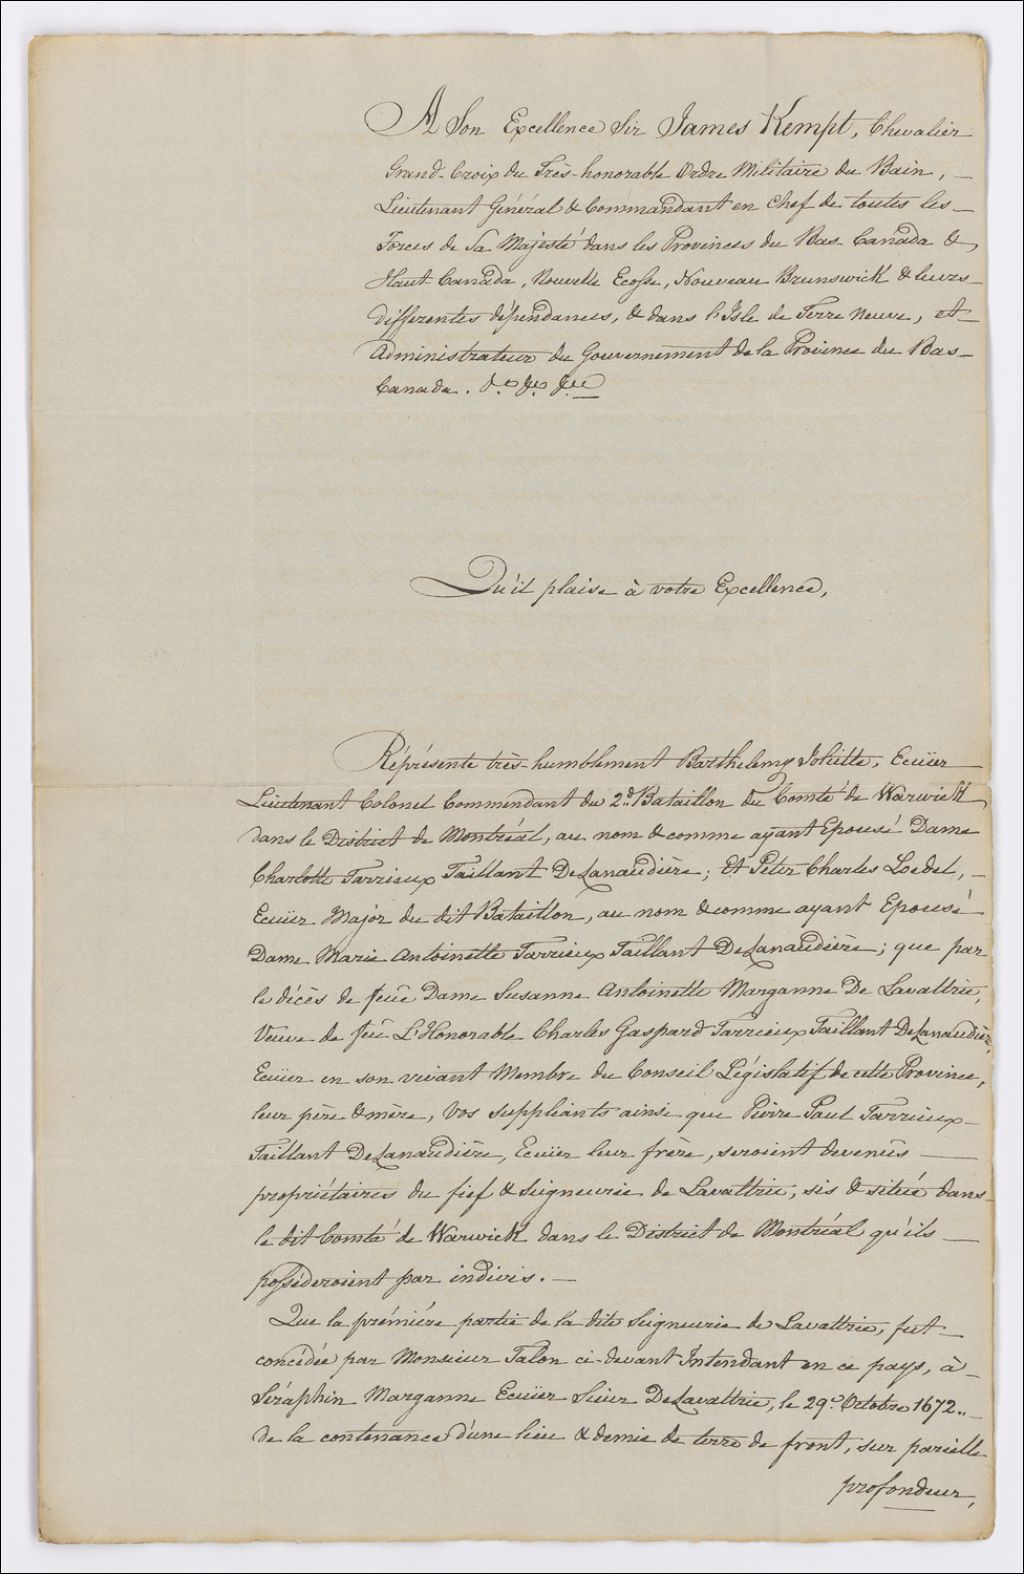 A Son Excellence Sir James Kempt, Chevalier
Grand-Croix du Très-honorable Ordre Militaire du Bain, —
Lieutenant Général & Commandant en Chef de toutes les —
Forces de Sa Majesté dans les Provinces du Bas Canada &
Haut Canada, Nouvelle Ecosse, Nouveau Brunswick & leurs —
differentes dépendances, & dans l'Isle de Terre Neuve, et —
Administrateur du Gouvernement de la Province du Bas —
Canada. &c &c &c
Qu'il plaise à votre Excellence,
Répresente très-humblement Barthelemy Joliette, Ecuïer
Lieutenant Colonel Commendant du 2d. Bataillon du Comté de Warwick
dans le District de Montréal, au nom & comme ayant Epousé Dame
Charlotte Tarrieux Taillant DeLanaudière; Et Peter Charles Loedel, —
Ecuïer Major du dit Bataillon, au nom & comme ayant Epousé
Dame Marie Antoinette Tarrieux Taillant DeLanaudière; que par
le décès de feüe Dame Susanne Antoinette Marganne De Lavaltrie,
Veuve de feü L'Honorable Charles Gaspard Tarrieux Taillant DeLanaudière,
Ecuïer en son vivant Membre du Conseil Législatif de cette Province,
leur père & mère, Vos suppliants ainsi que Pierre Paul Tarrieux —
Taillant DeLanaudière, Ecuïer leur frère, seroient devenus —
propriétaires du fief & Seigneurie de Lavaltrie, sis & situé dans
le dit Comté de Warwick dans le District de Montréal qu'ils —
possèderoient par indivis. —
Que la prémière partie de la dite Seigneurie de Lavaltrie, fut —
concédée par Monsieur Talon ci-devant Intendant en ce pays, à —
Séraphin Marganne Ecuïer Sieur DeLavaltrie, le 29e. Octobre 1672.. —
de la contenance d'une lieu & demie de terre de front, sur pareille
profondeur,